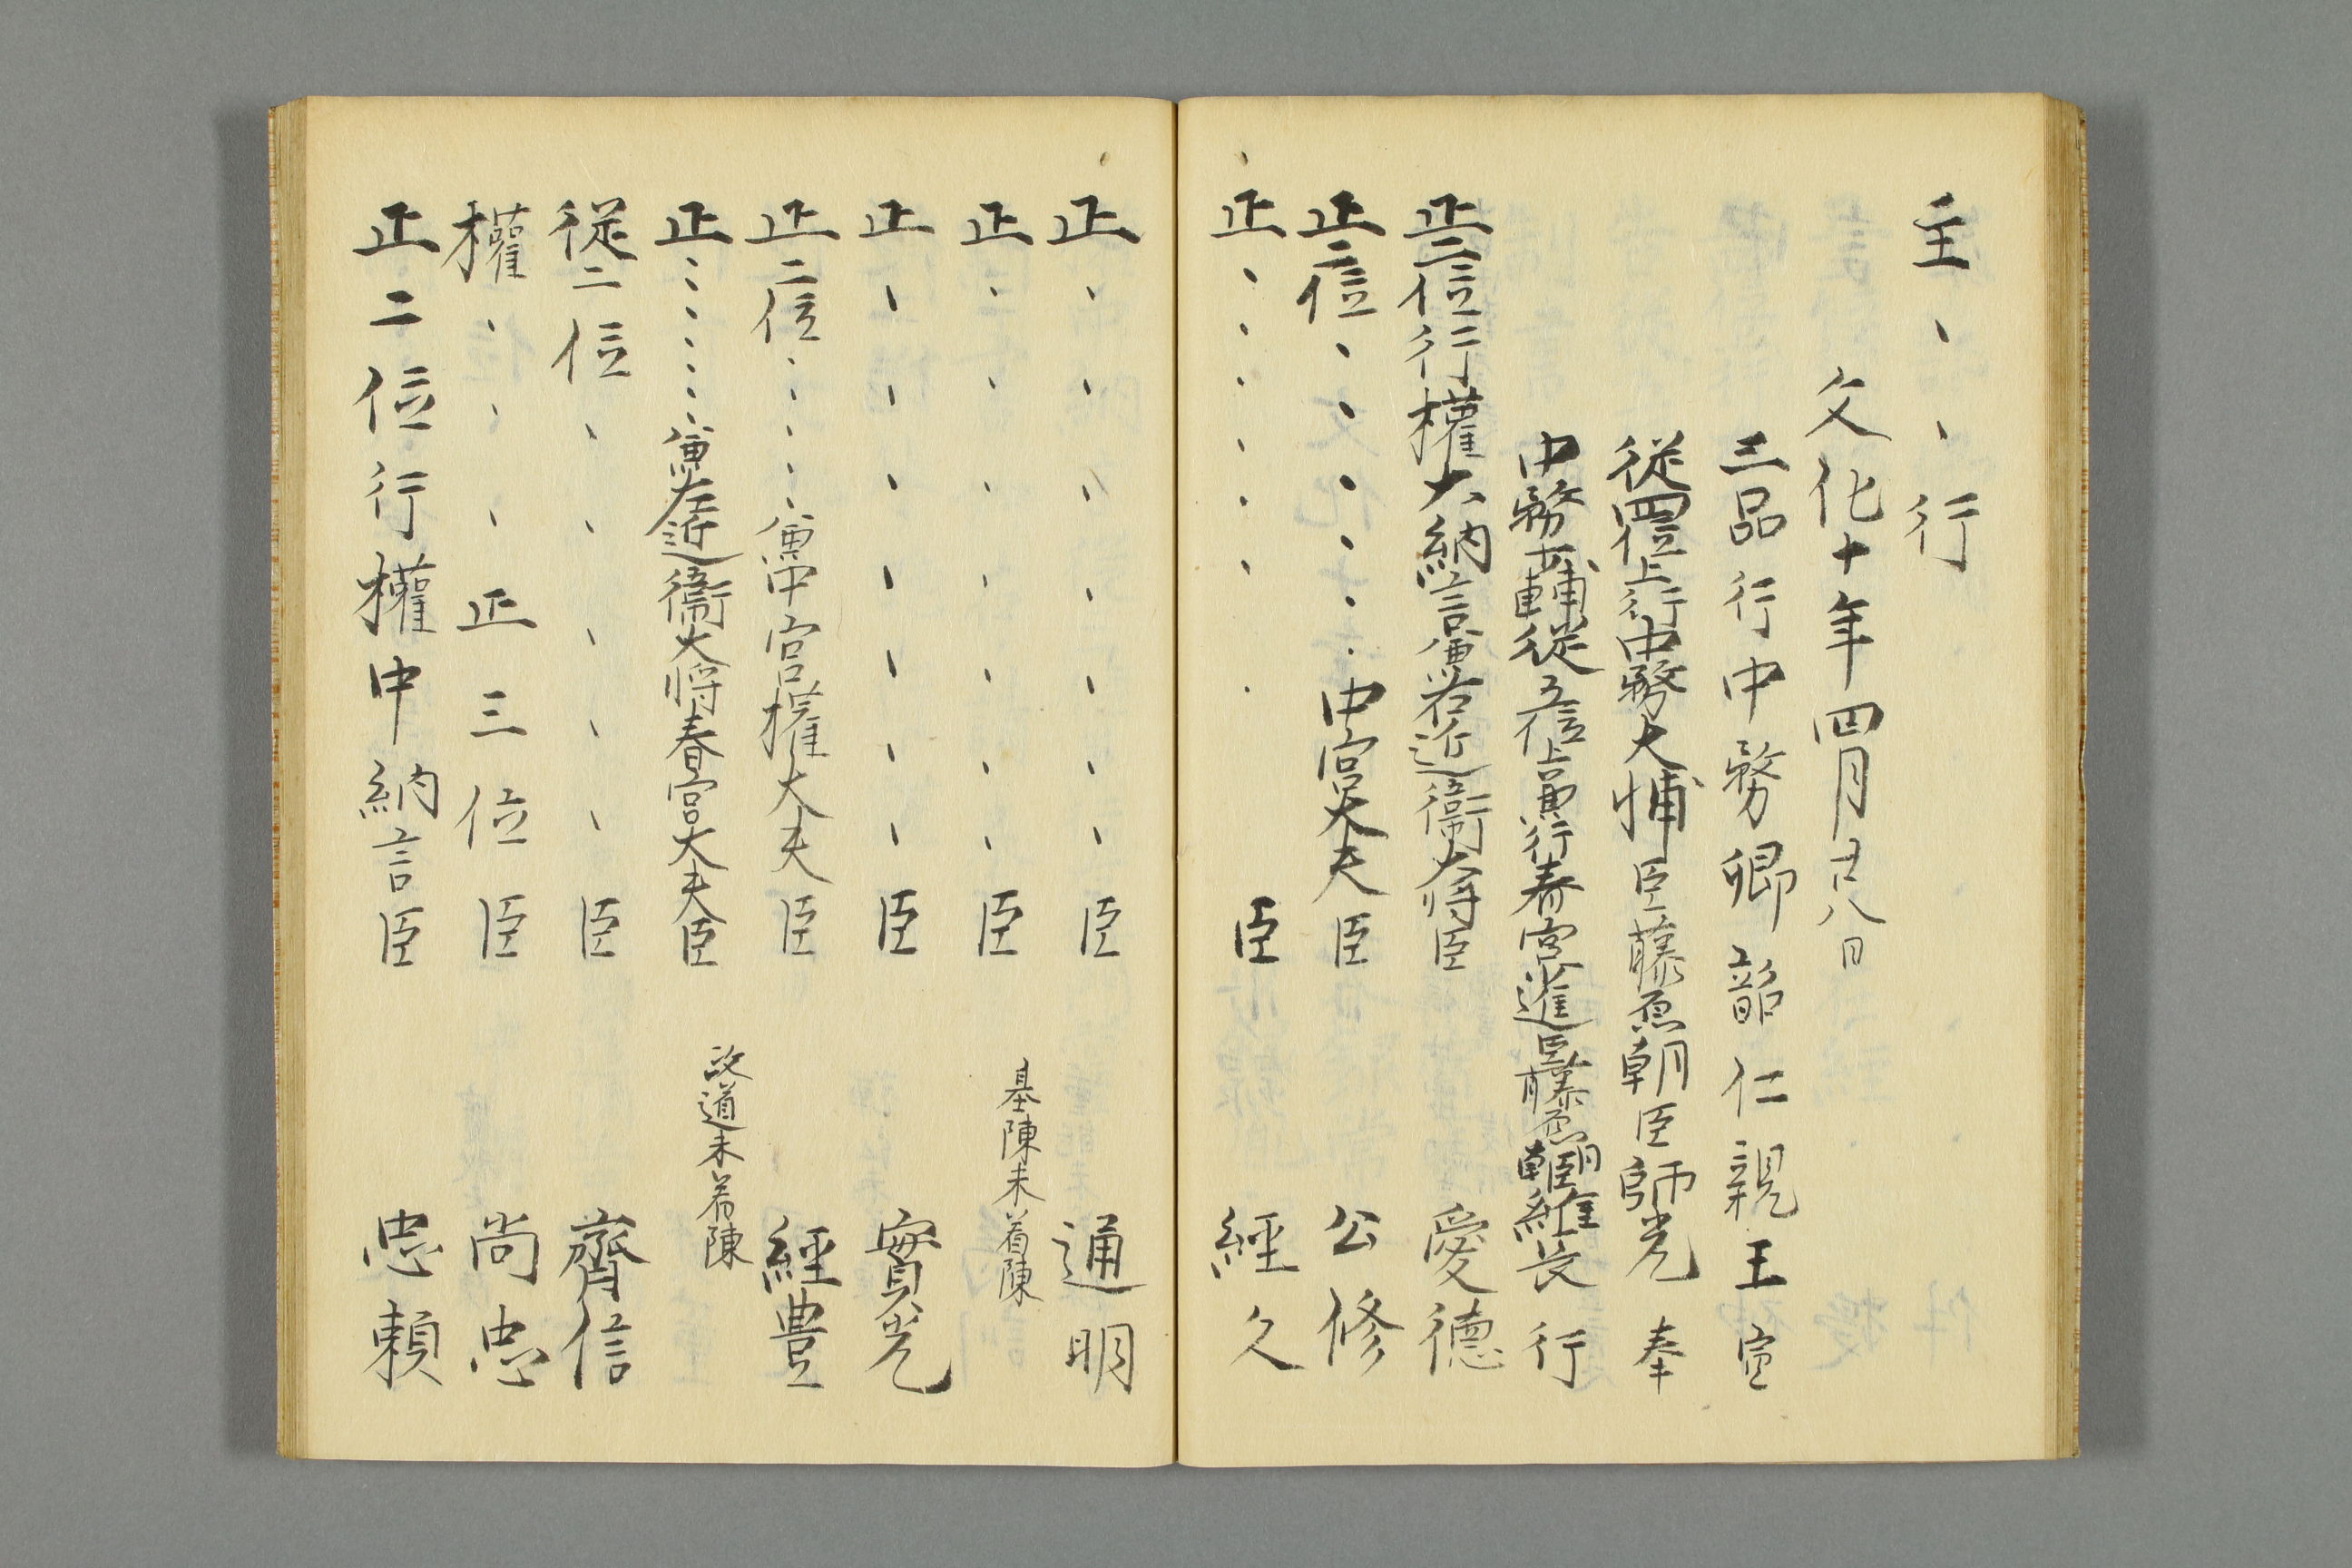 主、、行
文化十年四月廿八日
三品行中務卿韶仁親王宣
従四位上行中務大輔臣藤原朝臣師光奉
中務少輔従五位上兼行春宮大進臣藤原朝臣維長行
正二位行權大納言兼右近衛大将臣愛德
正二位、、、、、中宮大夫臣公修
正、、、、、、、臣經久
正、、、、、、、臣通明
正、、、、、、、臣
基陳未着陳
正、、、、、、、臣實光
正二位、、、、兼中宮權大夫臣經豊
正、、、、、、兼左近衛大将春宮大夫臣
改道未着陳
従二位、、、、、臣齊信
權、、、正三位臣尚忠
正二位行權中納言臣忠頼